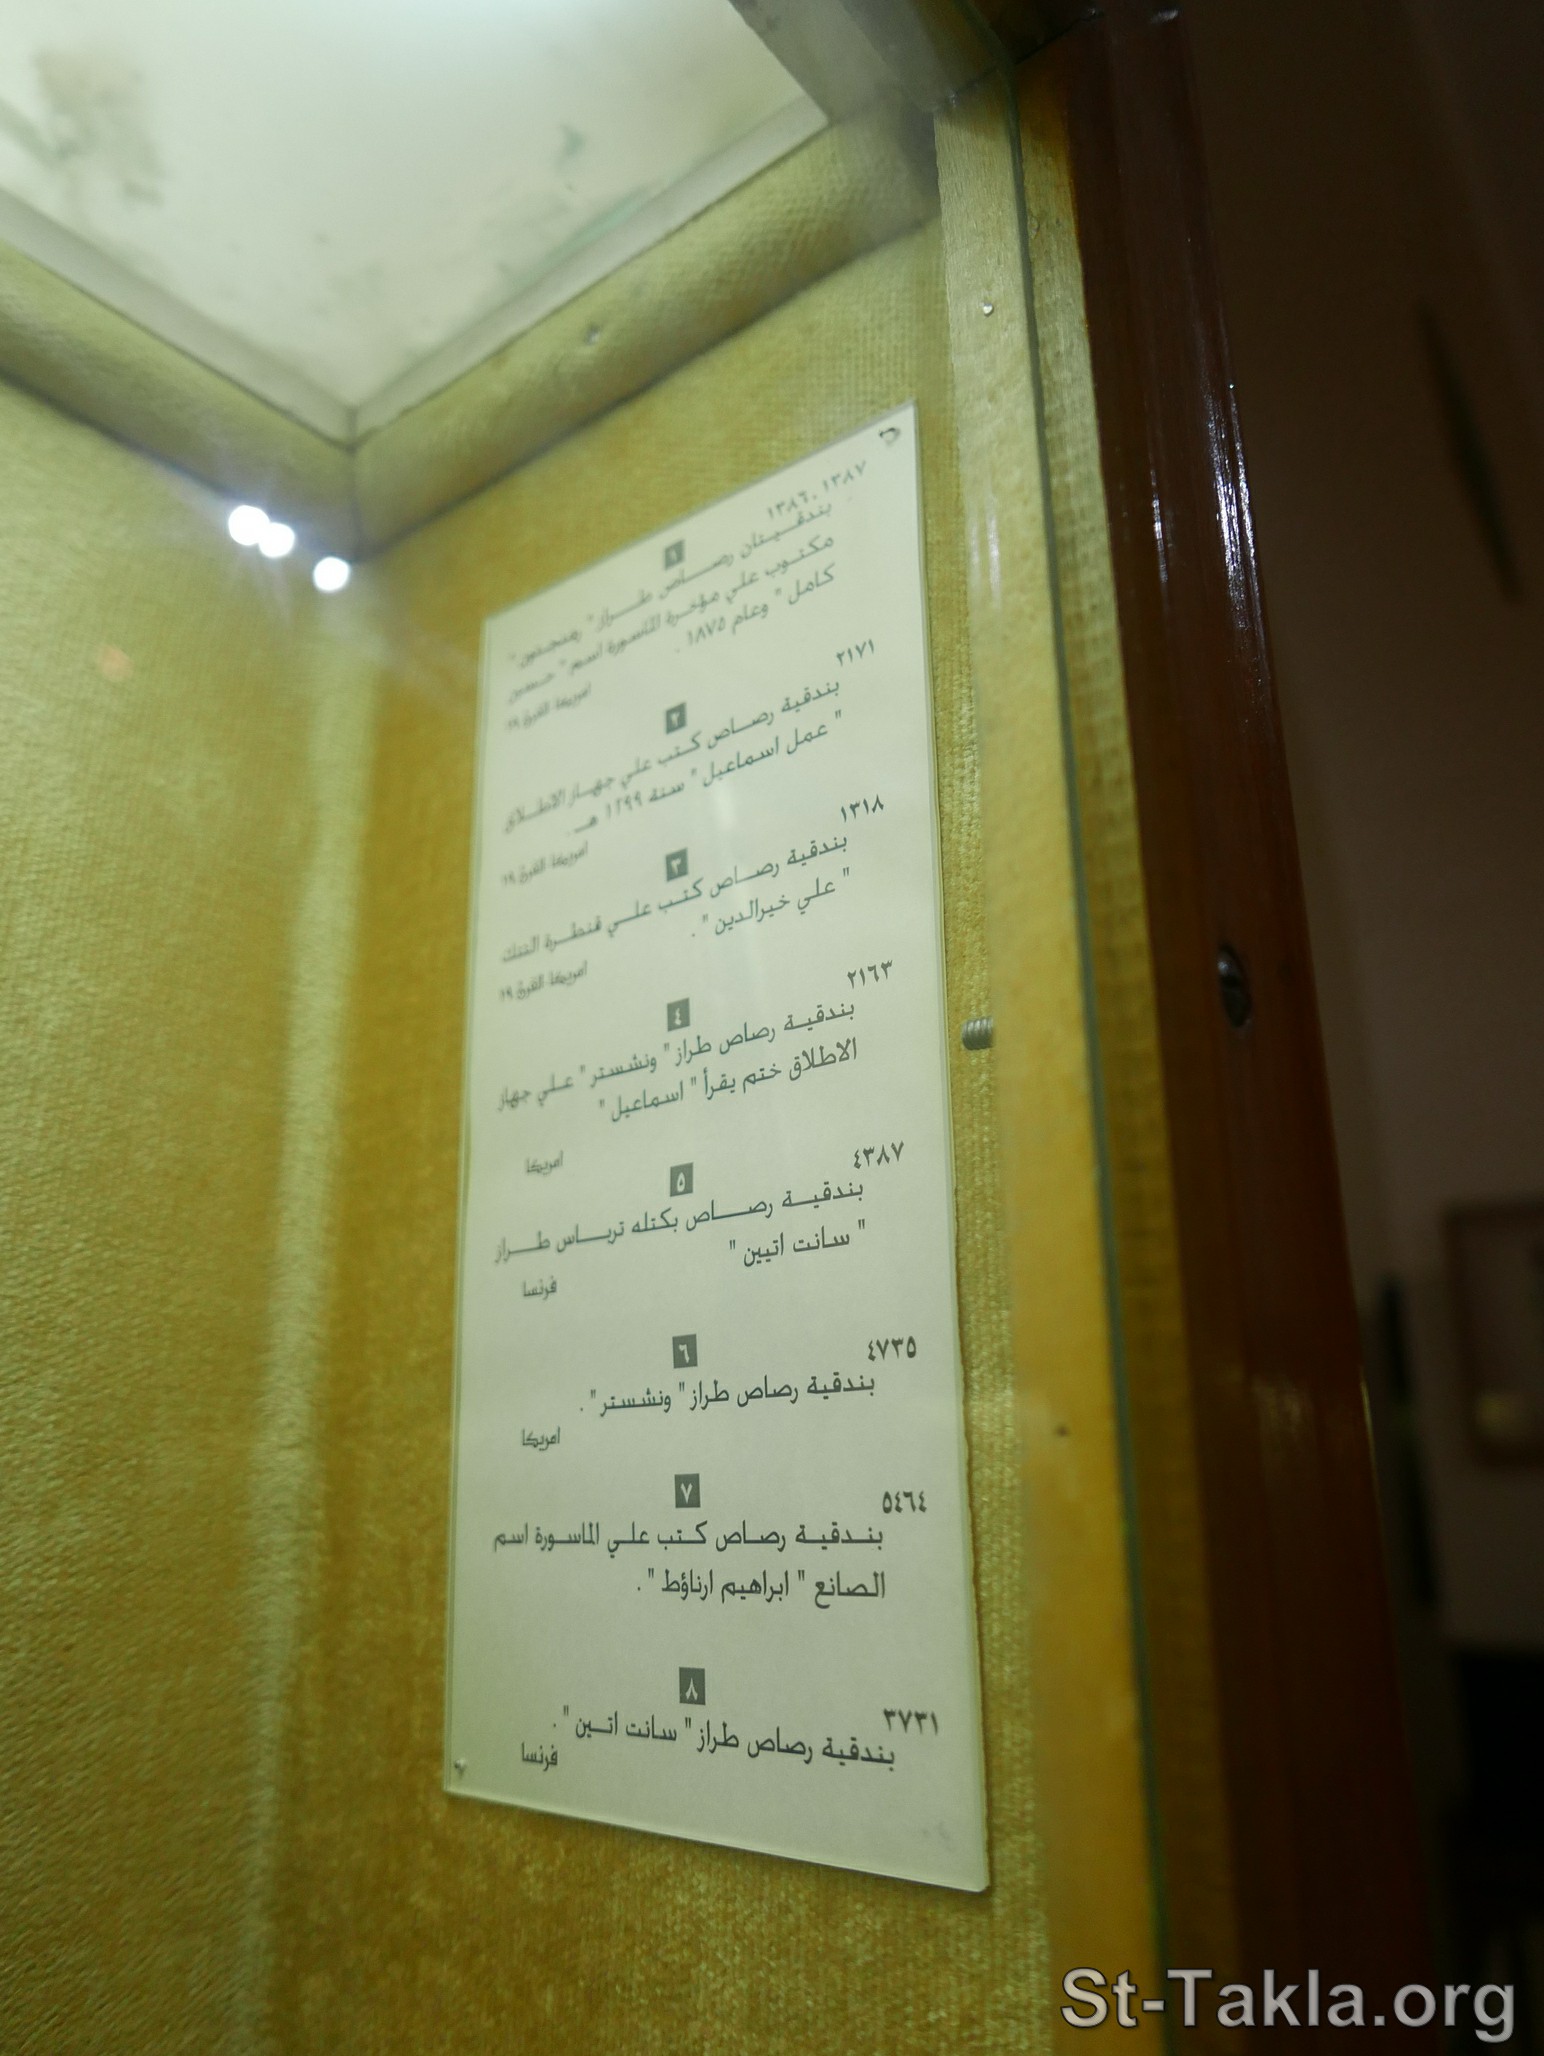 ١٣٨٧ ،١٣٨٦
١
بندقيتان رصاص طراز " رمنجتون "
مكتوب علي مؤخرة الماسورة اسم " حسين
كامل " وعام ١٨٧٥ .
امريكا القرن ١٩
٢١٧١
٢
بندقية رصاص كتب علي جهاز الاطلاق
" عمل اسماعيل " سنة ١٢٩٩ هـ .
امريكا القرن ١٩
١٣١٨
٣
بندقية رصاص كتب علي قنطرة التتك
" علي خيرالدين " .
امريكا القرن ١٩
٢١٦٣
٤
بندقية رصاص طراز " ونشستر " علي جهاز
الاطلاق ختم يقرأ " اسماعيل "
امريكا
٤٣٨٧
٥
بندقية رصاص بكتله ترباس طراز
" سانت اتيين "
فرنسا
٤٧٣٥
٦
بندقية رصاص طراز " ونشستر " .
امريكا
٥٤٦٤
٧
بندقية رصاص كتب علي الماسورة اسم
الصانع " ابراهيم ارناؤط " .
٣٧٣١
٨
بندقية رصاص طراز " سانت اتين " .
فرنسا
St-Takla.org